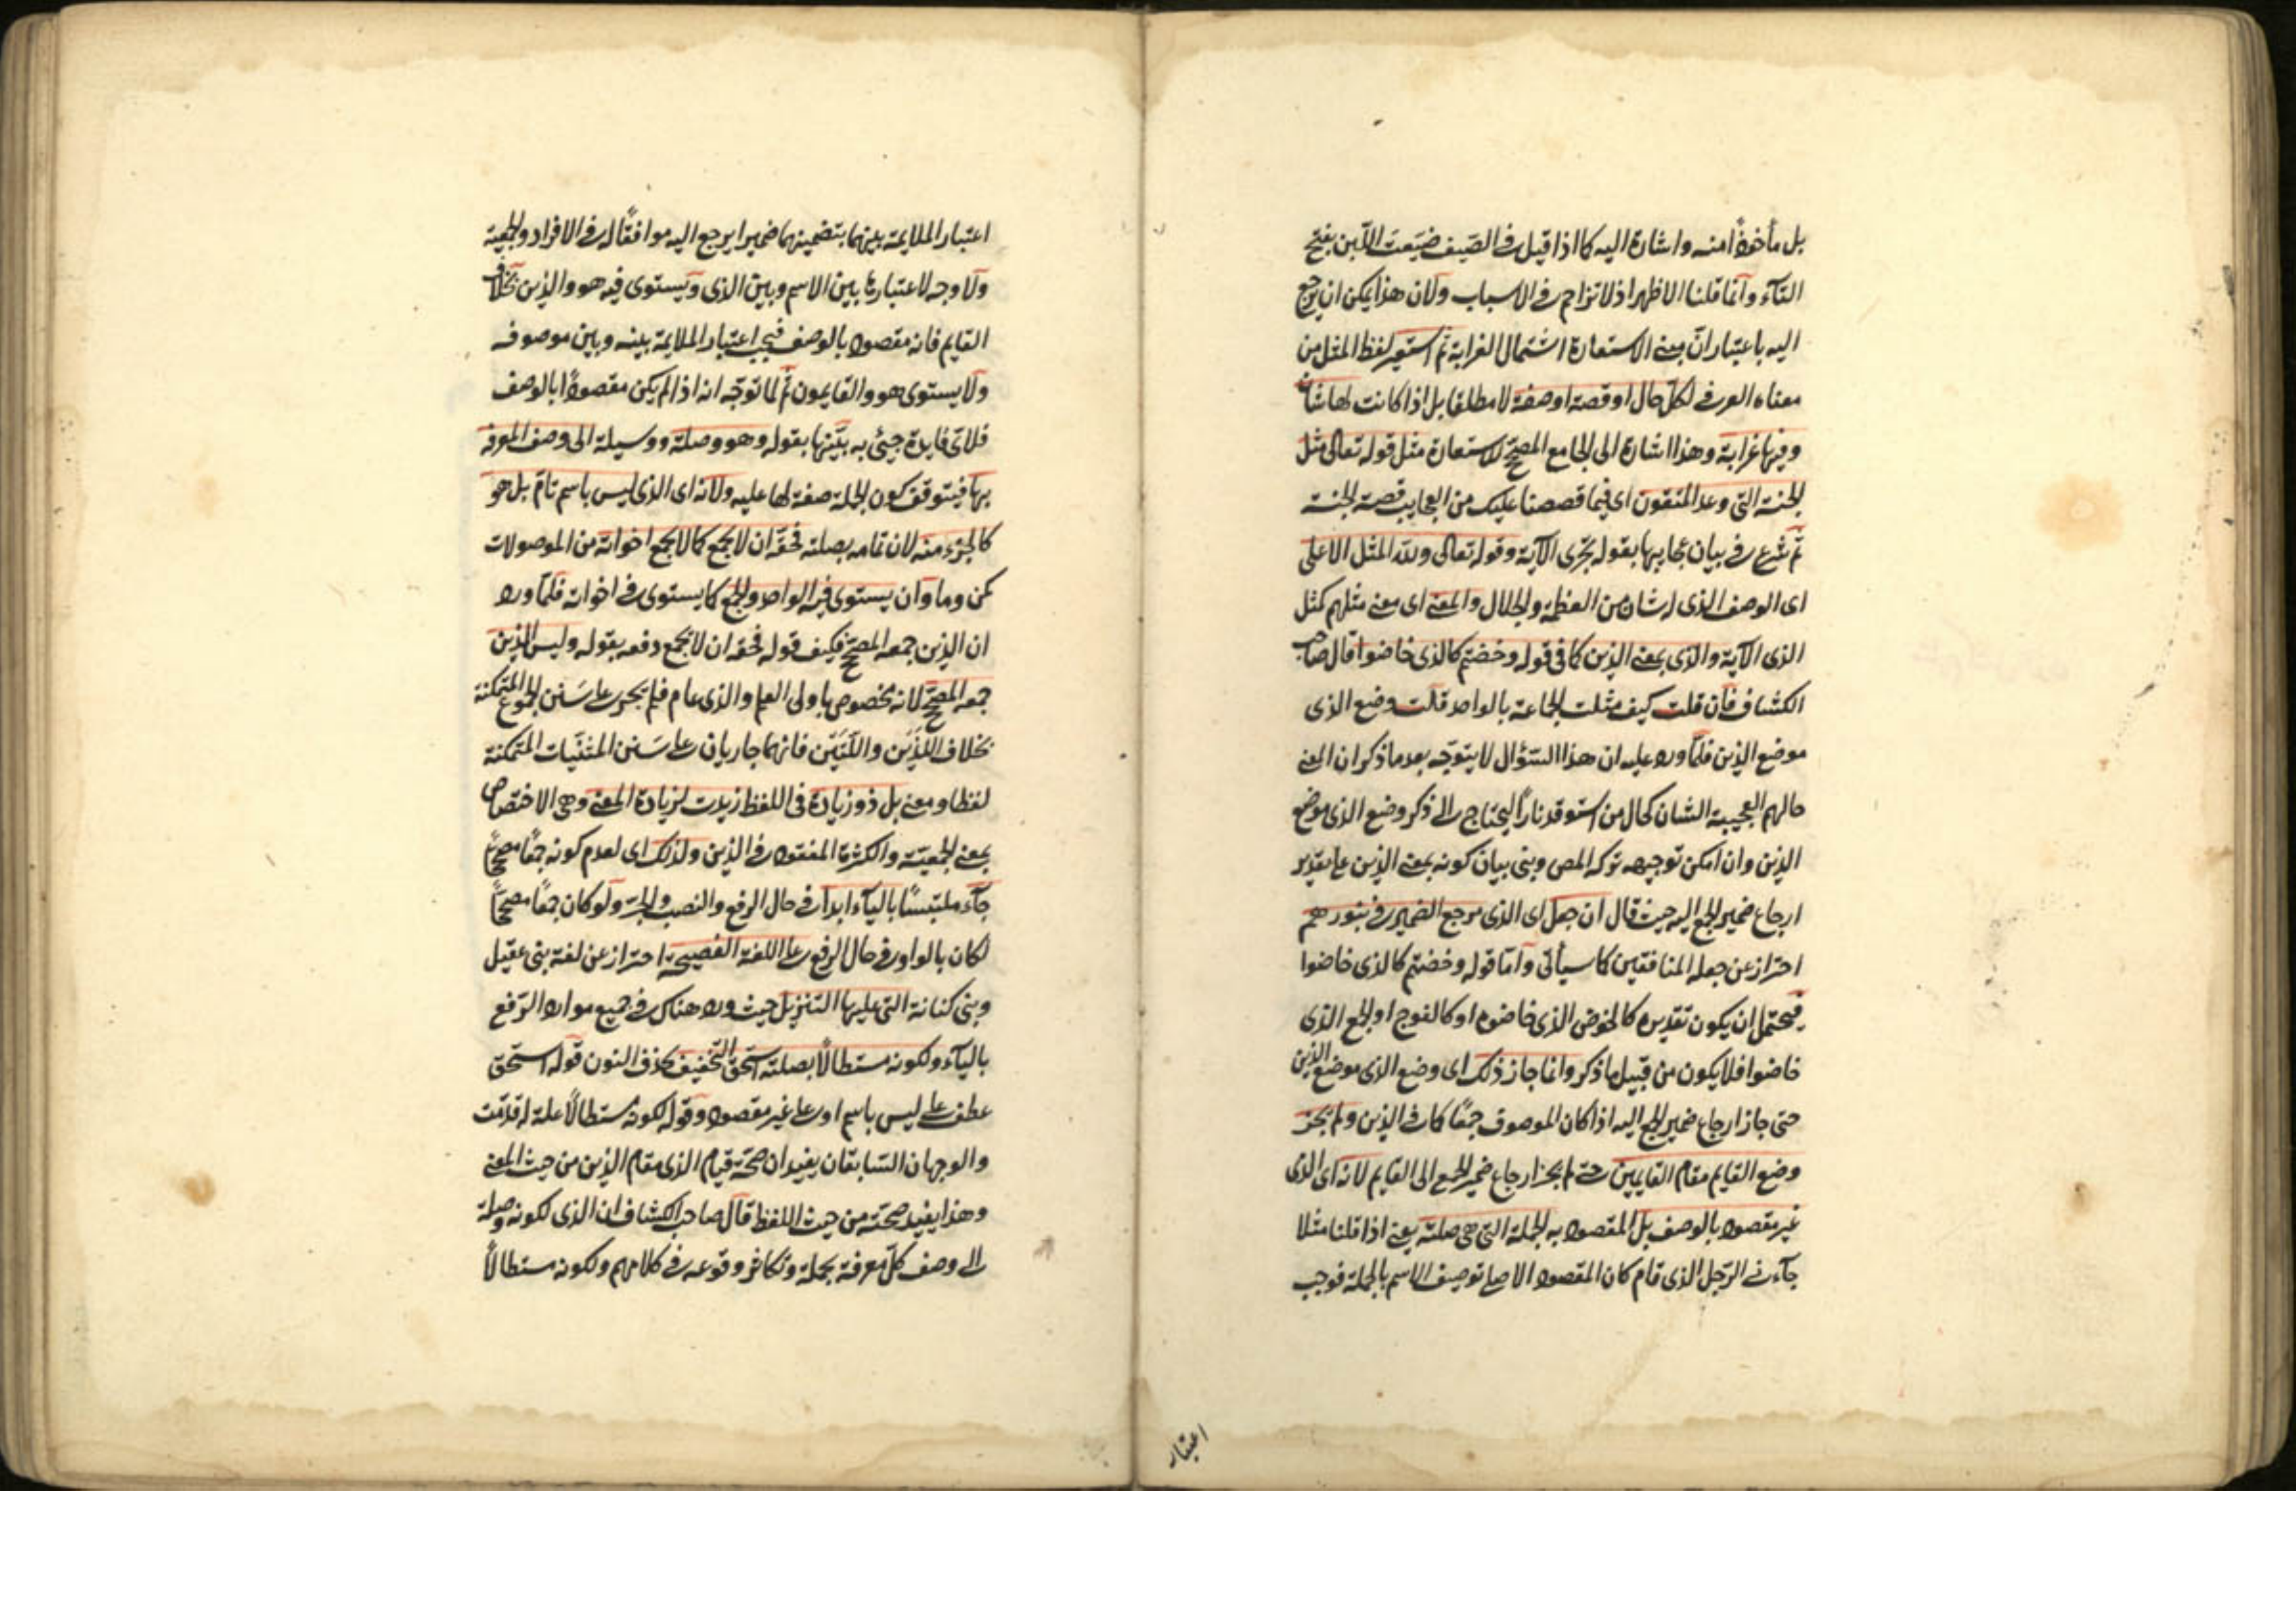 بل مأخوذا منه واشارة اليه كما اذا قيل في الصيف ضيعت اللبن بفتح
التآء وانما قلنا الاظهر اذ لا تزاحم في الاسباب ولان هذا يمكن ان يرجع
اليه باعتبار ان مبنى الاستعارة اشتمال الغرابة ثم استعير لفظ المثل من
معناه العرفي لكل حال او قصة او صفة لا مطلقا بل اذا كانت لها شان
وفيها غرابة وهذا اشارة الى الجامع المصحح للاستعارة مثل قوله تعالى مثل
الجنة التي وعد المتقون اى فيما قصصنا عليك من العجايب قصة الجنة
ثم شرع في بيان عجايبها بقوله تجرى الآية وقوله تعالى ولله المثل الاعلى
اى الوصف الذى له شان من العظمة والجلال والمعنى اى معنى مثلهم كمثل
الذى الآية والذى بمعنى الذين كما في قوله وخضتم كالذى خاضوا قال صاحب
الكشاف فان قلت كيف مثلت الجماعة بالواحد قلت وضع الذى
موضع الذين فلما ورد عليه ان هذا السؤال لا يتوجه بعد ما ذكر ان المعنى
حالهم العجيبة الشان كحال من استوقد نارا ليحتاج الى ذكر وضع الذى موضع
الذين وان امكن توجيهه تركه المص وبنى بيان كونه بمعنى الذين على تقدير
ارجاع ضمير الجمع اليه حيث قال ان جعل اى الذى مرجع الضمير في بنورهم
احتراز عن جعله المنافقين كما سيأتى واما قوله وخضتم كالذى خاضوا
فيحتمل ان يكون تقديره كالخوض الذى خاضوه او كالفوج او الجمع الذى
خاضوا فلا يكون من قبيل ما ذكر وانما جاز ذلك اى وضع الذى موضع الذين
حتى جاز ارجاع ضمير الجمع اليه اذا كان الموصوف جمعا كما في الذين ولم يجز
وضع القايم مقام القايمين حتى لم يجز ارجاع ضمير الجمع الى القايم لانه اى الذى
غير مقصود بالوصف بل المقصود به الجملة التي هي صلته يعنى اذا قلنا مثلا
جآءنى الرجل الذى قام كان المقصود الاصلى توصيف الاسم بالجملة فوجب
اعتبار
اعتبار الملايمة بينهما بتضمينها ضميرا يرجع اليه موافقا له في الافراد والجمعية
ولا وجه لاعتبارها بين الاسم وبين الذى ويستوى فيه هو والذين بخلاف
القايم فانه مقصود بالوصف فيجب اعتبار الملايمة بينه وبين موصوفه
ولا يستوى هو والقايمون ثم لما توجه انه اذا لم يكن مقصودا بالوصف
فلاى فايدة جيئ به بينها بقوله وهو وصلة ووسيلة الى وصف المعرفة
بها فيتوقف كون الجملة صفة لها عليه ولانه اى الذى ليس باسم تام بل هو
كالجزء منه لان تمامه بصلته فحقه ان لا يجمع كما لا يجمع اخواته من الموصولات
كمن وما وان يستوى فيه الواحد والجمع كما يستوى في اخواته فلما ورد
ان الذين جمعه المصحح فكيف قوله فحقه ان لا يجمع دفعه بقوله وليس الذين
جمعه المصحح لانه مخصوص باولى العلم والذى عام فلم يجر على سنن الجموع المتمكنة
بخلاف اللذين واللتين فانهما جاريان على سنن المثنيات المتمكنة
لفظا ومعنى بل ذو زيادة في اللفظ زيدت لزيادة المعنى وهى الاختصاص
بمعنى الجمعية والكثرة المفقود في الذين ولذلك اى لعدم كونه جمعا مصححا
جآء ملتبسا باليآء ابدا في حال الرفع والنصب والجر ولو كان جمعا مصححا
لكان بالواو في حال الرفع على اللغة الفصيحة احتراز عن لغة بنى عقيل
وبنى كنانة التى عليها التنزيل حيث ورد هناك في جميع موارد الرفع
باليآء ولكونه مستطالا بصلته استحق التخفيف بحذف النون قوله استحق
عطف على ليس باسم او على غير مقصود وقوله لكونه مستطالا علة له قدمت
والوجهان السابقان يفيدان صحة قيام الذى مقام الذين من حيث المعنى
وهذا يفيد صحته من حيث اللفظ قال صاحب الكشاف ان الذى لكونه وصلة
الى وصف كل معرفة بجملة وتكاثر وقوعه في كلامهم ولكونه مستطالا